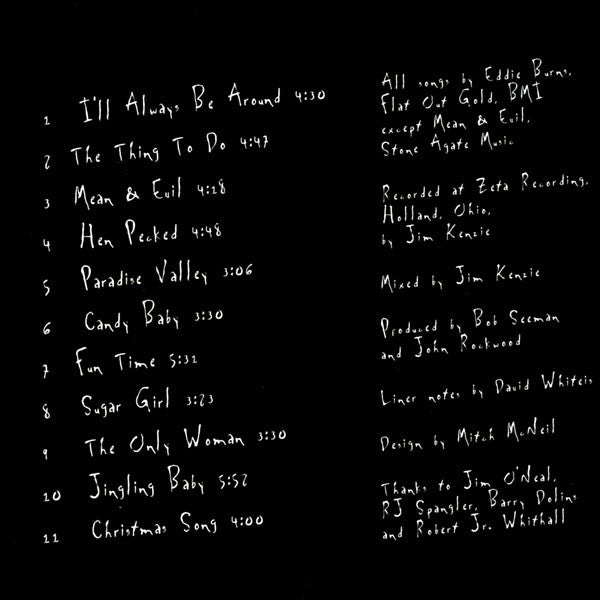 1 I'll Always Be Around 4:30
2 The Thing To Do 4:47
3 Mean & Evil 4:28
4 Hen Pecked 4:48
5 Paradise Valley 3:06
6 Candy Baby 3:30
7 Fun Time 5:32
8 Sugar Girl 3:23
9 The Only Woman 3:30
10 Jingling Baby 5:52
11 Christmas Song 4:00
All songs by Eddie Burns,
Flat Out Gold, BMI
except Mean & Evil,
Stone Agate Music
Recorded at Zeta Recording,
Holland, Ohio,
by Jim Kenzie
Mixed by Jim Kenzie
Produced by Bob Seeman
and John Rockwood
Liner notes by David Whiteis
Design by Mitch McNeil
Thanks to Jim O'Neal,
RJ Spangler, Barry Dolins
and Robert Jr. Whithall